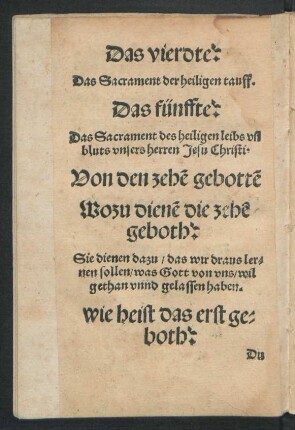 Das vierdte?
Das Sacrament der heiligen tauff.
Das fünffte?
Das Sacrament des heiligen leibs vñ
bluts vnsers herren Jesu Christi.
Von den zehẽ gebottẽ
Wozu dienẽ die zehẽ
geboth?
Sie dienen dazu / das wir draus ler-
nen sollen / was Gott von vns / wil
gethan vnnd gelassen haben.
wie heist das erst ge-
both?
Du